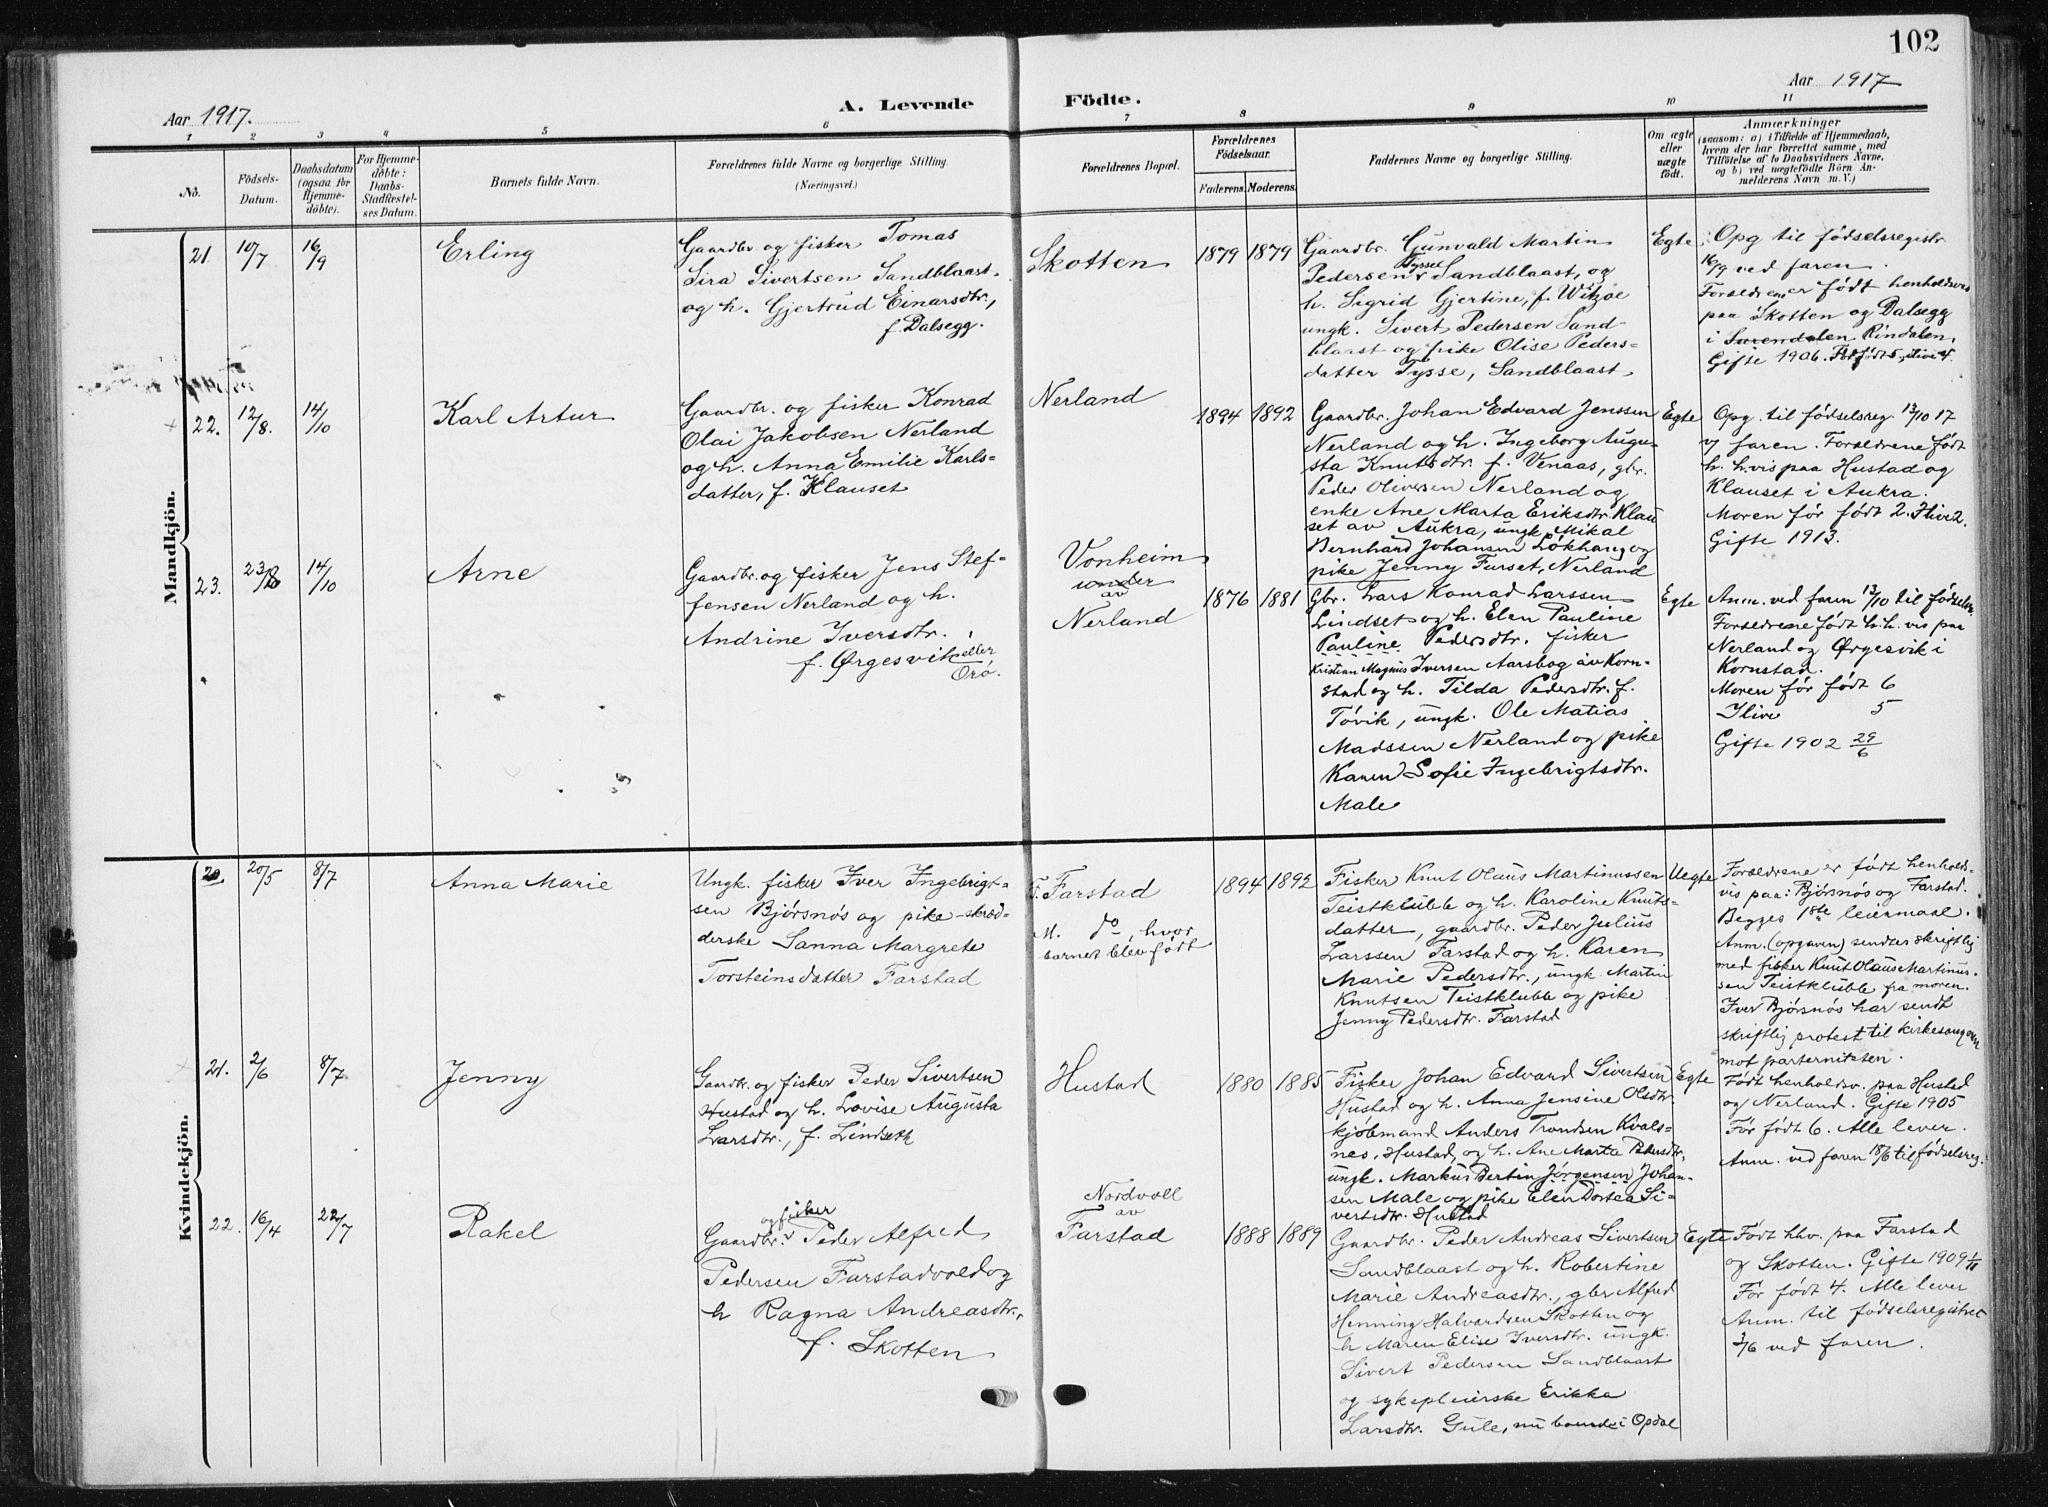 102
Aar 1917.
A. Levende
Födte.
Aar 1917
1 2 3 4 5 6 7 8 9 10 11
No.
Födsels-
Datum.
Daabsdatum
(ogsaa for
Hjemme-
döbte).
For Hjemme-
döbte:
Daabs-
Stadfæstel-
ses Datum.
Barnets fulde Navn.
Forældrenes fulde Navne og borgerlige Stilling.
(Næringsvei.)
Forældrenes Bopæl.
Forældrenes
Födselsaar.
Faderens. Moderens.
Faddernes Navne og borgerlige Stilling.
Om ægte
eller
uægte
födt.
Anmærkninger
(saasom: a) i Tilfælde af Hjemmedaab,
hvem der har forrettet samme, med
Tilföielse af to Daabsvidners Navne,
og b) ved uægtefödte Börn An-
melderens Navn m. V.)
Mandkjön.
21. 10/7 16/9
Erling
Gaardbr og fisker Tomas
Sira Sivertsen Sandblaast
og h. Gjertrud Einarsdtr,
f. Dalsegg.
Skotten
1879 1879
Gaardbr. Gunvald Martin
Pedersen Tysse Sandblaast, og
h. Sigrid Gjertine, f. Witzøe
ungk. Sivert Pedersen Sand-
blaast og pike Olise Peders-
datter Tysse, Sandblaast
Egte
Opg til fødselsregistr
16/9 ved faren.
Forældrene er født henholdsvis
paa Skotten og Dalsegg
i Surendalen Rindalen,
Gifte 1906. Før født 5, ilive 4.
22. 12/8. 14/10
Karl Artur
Gaardbr. og fisker Konrad
Olai Jakobsen Nerland
og h. Anna Emilie Karls-
datter, f. Klauset
Nerland
1894 1892
Gaardbr. Johan Edvard Jenssen
Nerland og h. Ingeborg Augu-
sta Knutsdtr. f. Venaas, gbr.
Peder Oliversen Nerland og
enke Ane Marta Eriksdtr Klau
set av Aukra, ungk. Mikal
Bernhard Johansen Løkhaug og
pike Jenny Furset, Nerland
Egte
Opg. til fødselsreg. 13/10 17
v/ faren. Forældrene født
h. h.vis paa Hustad og
Klauset i Aukra.
Moren før født 2. Ilive 2.
Gifte 1913.
23. 23/8 14/10
Arne
Gaardbr. og fisker Jens Stef-
fensen Nerland og h.
Andrine Iversdtr.
f. Ørgesvik eller
Orö.
Vonheim
under
av
Nerland
1876 1881
Gbr. Lars Konrad Larssen
Lindset og h. Elen Pauline
Pauline Pedersdtr. fisker
Kristian Magnus Iversen Aarsbog av Korn-
stad og h. Tilda Pedersdtr. f.
Tövik, ungk. Ole Matias
Madssen Nerland og pike
Karen Sofie Ingebrigtsdtr.
Male
Egte
Anm. ved faren 13/10 til fødselsr.
Forældrene født h. h. vis paa
Nerland og Ørgesvik i
Kornstad.
Moren før født 6
Ilive 5
Gifte 1902 29/6
Kvindekjön.
20 20/5 8/7
Anna Marie
Ungk. fisker Iver Ingebrigt-
sen Bjørsnøs og pike - skræd-
derske Sanna Margrete
Torsteinsdatter Farstad
F. Farstad
M. do, hvor
barnet blev født
1894 1892
Fisker Knut Olaus Martinussen
Teistklubb og h. Karoline Knuts-
datter, gaardbr. Peder Julius
Larssen Farstad og h. Karen
Marie Pedersdtr., ungk. Martin
Knutsen Teistklubb og pike
Jenny Pedersdtr. Farstad
Uegte
Forældrene er født henholds-
vis paa: Bjørsnøs og Farstad.
Begges 1ste leiermaal.
Anm. (opgaven) sendtes skriftlig
med fisker Knut Olaus Martinus-
sen Teistklubb fra moren.
Iver Bjørsnøs har sendt
skriftlig protest til kirkesangeren
mot paterniteten.
21. 2/6 8/7
Jenny
Gaardbr. og fisker Peder Sivertsen
Hustad og h. Lovise Augusta
Larsdtr., f. Lindseth
Hustad
1880 1885
Fisker Johan Edvard Sivertsen
Hustad og h. Anna Jensine Olsdtr.
kjøbmand Anders Trondsen Kvals-
nes, Hustad, og h. Ane Marta Petersdtr,
ungk. Markus Bertin Jørgensen Johan-
sen Male og pike Elen Dortea Si-
vertsdtr. Hustad
Egte
Født henholdsv. paa Hustad
og Nerland. Gifte 1905
Før født 6. Alle lever.
Anm. ved faren 18/6 til fødselsreg.
22. 16/4 22/7
Rakel
og fisker
Gaardbr. Peder Alfred
Pedersen Farstadvold og
h Ragna Andreasdtr.,
f. Skotten
Nordvoll
av
Farstad
1888 1889
Gaardbr. Peder Andreas Sivertsen
Sandblaast og h. Robertine
Marie Andreasdtr., gbr Alfred
Henning Halvardsen Skotten og
h Maren Elise Iversdtr. ungk.
Sivert Pedersen Sandblaast
og sykepleierske Erikka
Larsdtr. Gule, nu boende i Opdal
Egte
Født hhv. paa Farstad
og Skotten. Gifte 1909 1/11
Før født 4. Alle lever
Anm. til fødselsregistret
3/6 ved faren.